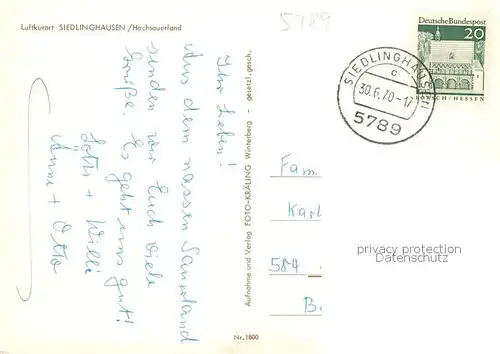 Luftkurort SIEDLINGHAUSEN /Hochsauerland
5789
Ihr Lieben!
Aus dem nassen Sauerland
senden wir Euch viele
Grüße. Es geht uns gut!
Lotti + Willi
Anne + Otto
Aufnahme und Verlag FOTO-KRÄLING Winterberg gesetzl. gesch.
Nr. 1800
Deutsche Bundespost
20
LORSCH / HESSEN
SIEDLINGHAUSEN
c
30.6.70-17
5789
Fam
Karl
584
B
privacy protection
Datenschutz